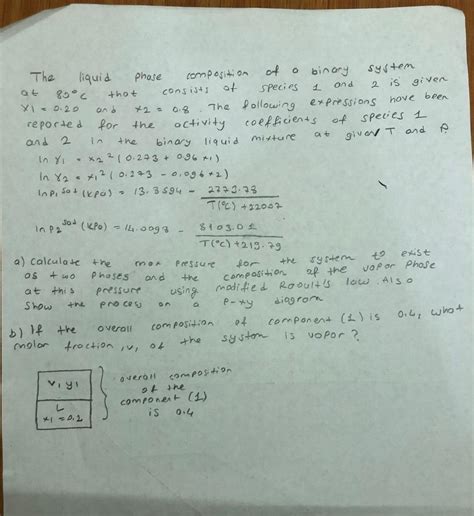 The liquid phase composition of a binary system
at 85°C that consists of species 1 and 2 is given
x1 = 0.20 and x2 = 0.8. The following expressions have been
reported for the activity coefficients of species 1
and 2 in the binary liquid mixture at given T and P
ln γ1 = x2² (0.273 + 0.96 x1)
ln γ2 = x1² (0.273 - 0.096 x2)
ln P1 sat (kPa) = 13.3594 - 2779.78
T(°C) + 220.07
ln P2 sat (kPa) = 14.0093 - 3103.01
T(°C) + 219.79
a) calculate the max pressure for the system to exist
as two phases and the composition of the vapor phase
at this pressure using modified Raoult's law. Also
show the process on a P-xy diagram
b) If the overall composition of component (1) is 0.4, what
molar fraction, v, of the system is vapor?
V, y1
overall composition
of the
L
component (1)
x1 = 0.2
is 0.4